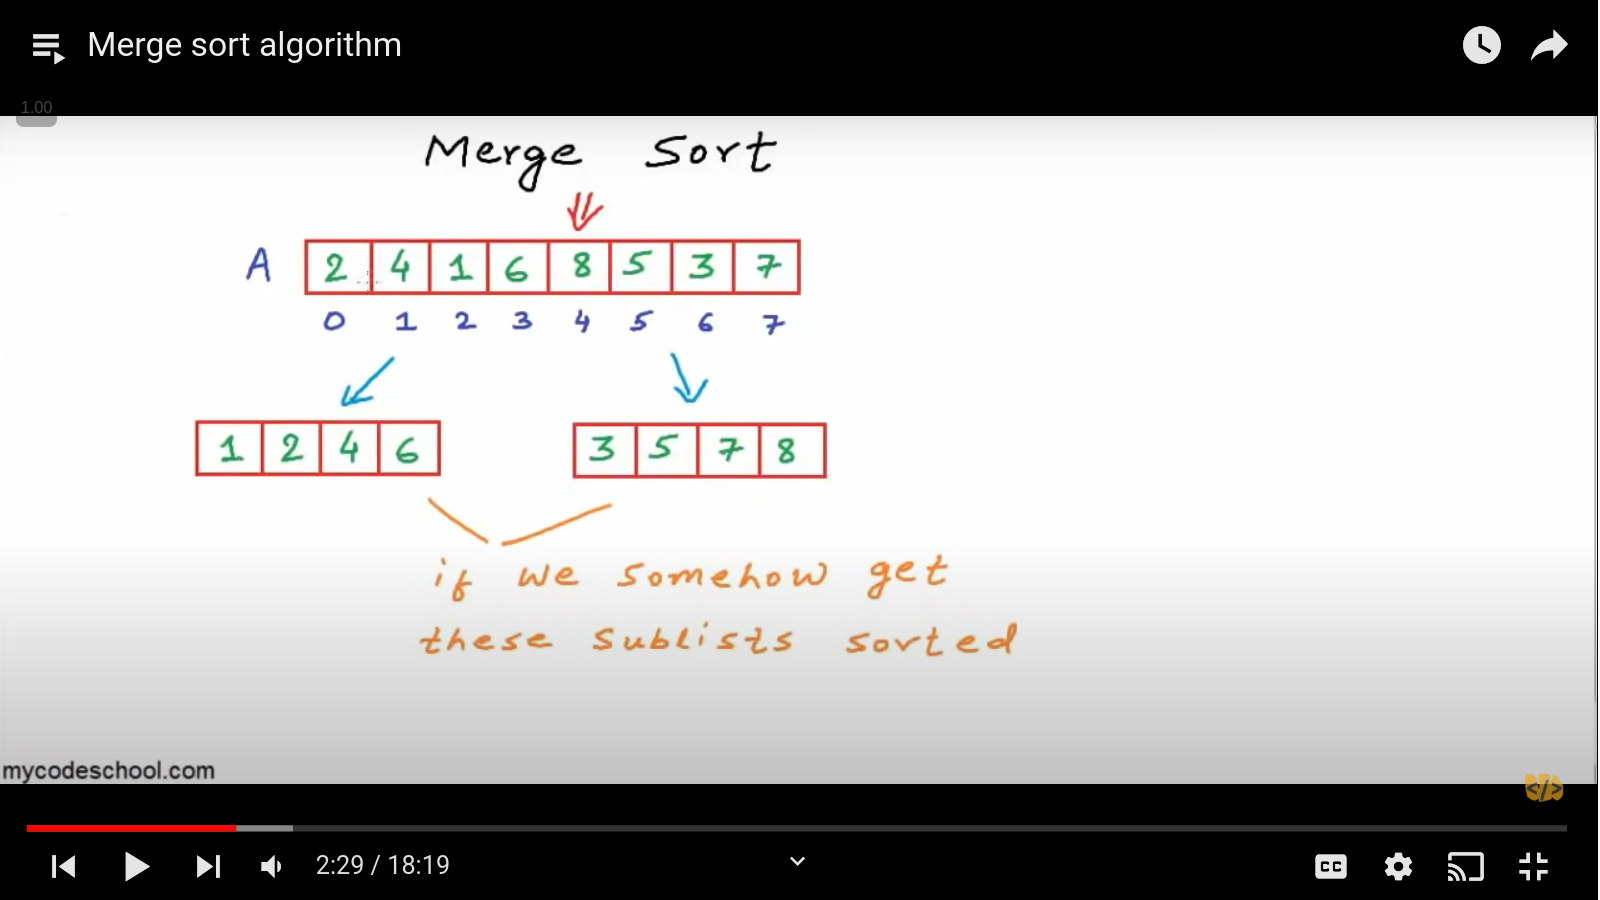 Merge sort algorithm
1.00
Merge Sort
A 2 4 1 6 8 5 3 7
0 1 2 3 4 5 6 7
1 2 4 6 3 5 7 8
if we somehow get
these sublists sorted
mycodeschool.com
</>
2:29 / 18:19
CC